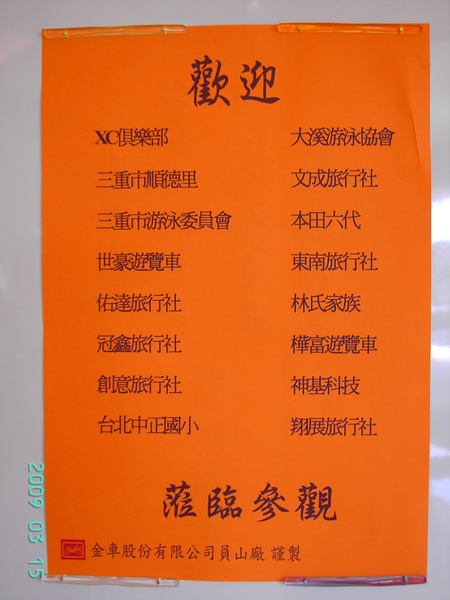 歡迎
XC俱樂部 大溪游泳協會
三重市順德里 文成旅行社
三重市游泳委員會 本田六代
世豪遊覽車 東南旅行社
佑達旅行社 林氏家族
冠鑫旅行社 樺富遊覽車
創意旅行社 神基科技
台北中正國小 翔展旅行社
蒞臨參觀
金車股份有限公司員山廠 謹製
2009 03 15